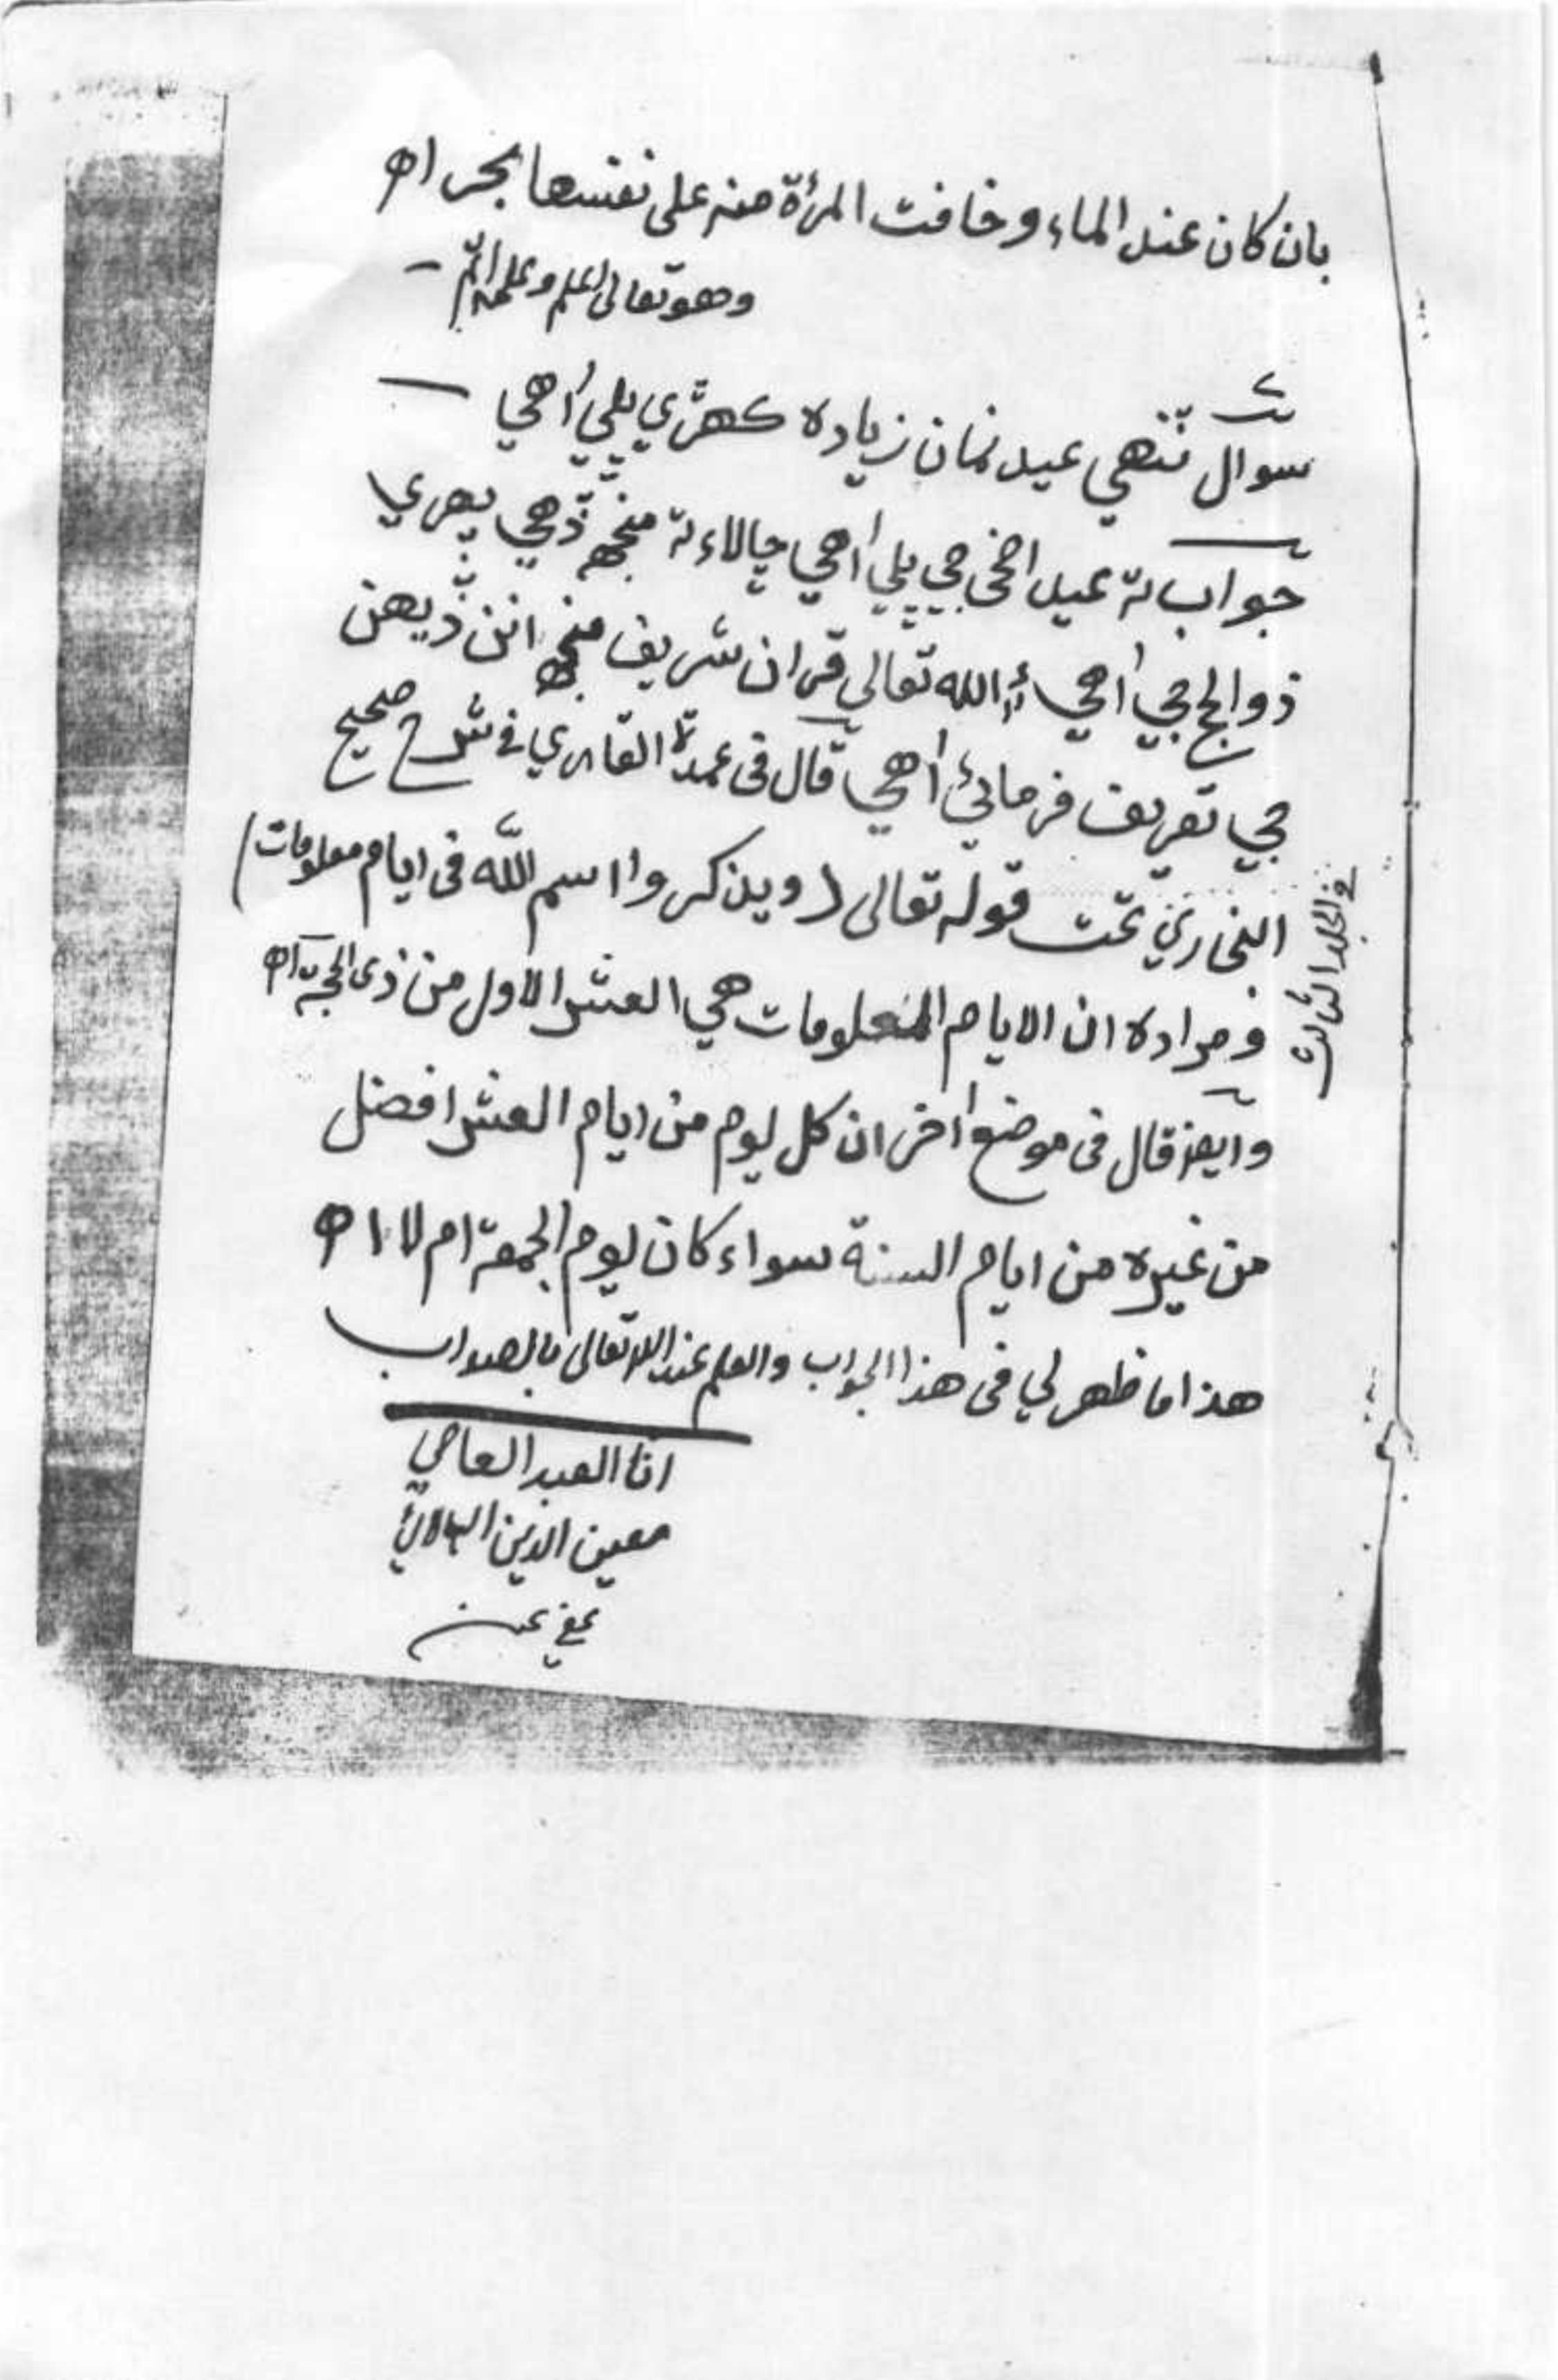 بان كان عند الماء وخافت المرأة منه على نفسها بحر اه
وهو تعالى اعلم وعلمه اتم -
سوال ٻنهي عيدن مان زياده كهڙي ڀلي آهي -
جواب ته عيد اضحى جي ڀلي آهي ڇالاء ته منجهه ڏهي پهري
ذو الحج جي آهي الله تعالى قران شريف منجهه انن ڏيهن
جي تعريف فرمائي آهي قال فى عمدة القاري في شرح صحيح
البخاري تحت قوله تعالى (ويذكروا اسم الله فى ايام معلومات)
فى الجلد الثالث
ومراده ان الايام المعلومات هي العشر الاول من ذى الحجة اه
وايضا قال فى موضع آخر ان كل يوم من ايام العشر افضل
من غيره من ايام السنة سواء كان يوم الجمعة ام لا اه
هذا ما ظهر لي فى هذا الجواب والعلم عند الله تعالى بالصواب
انا العبد العاصي
معين الدين
عفي عنه